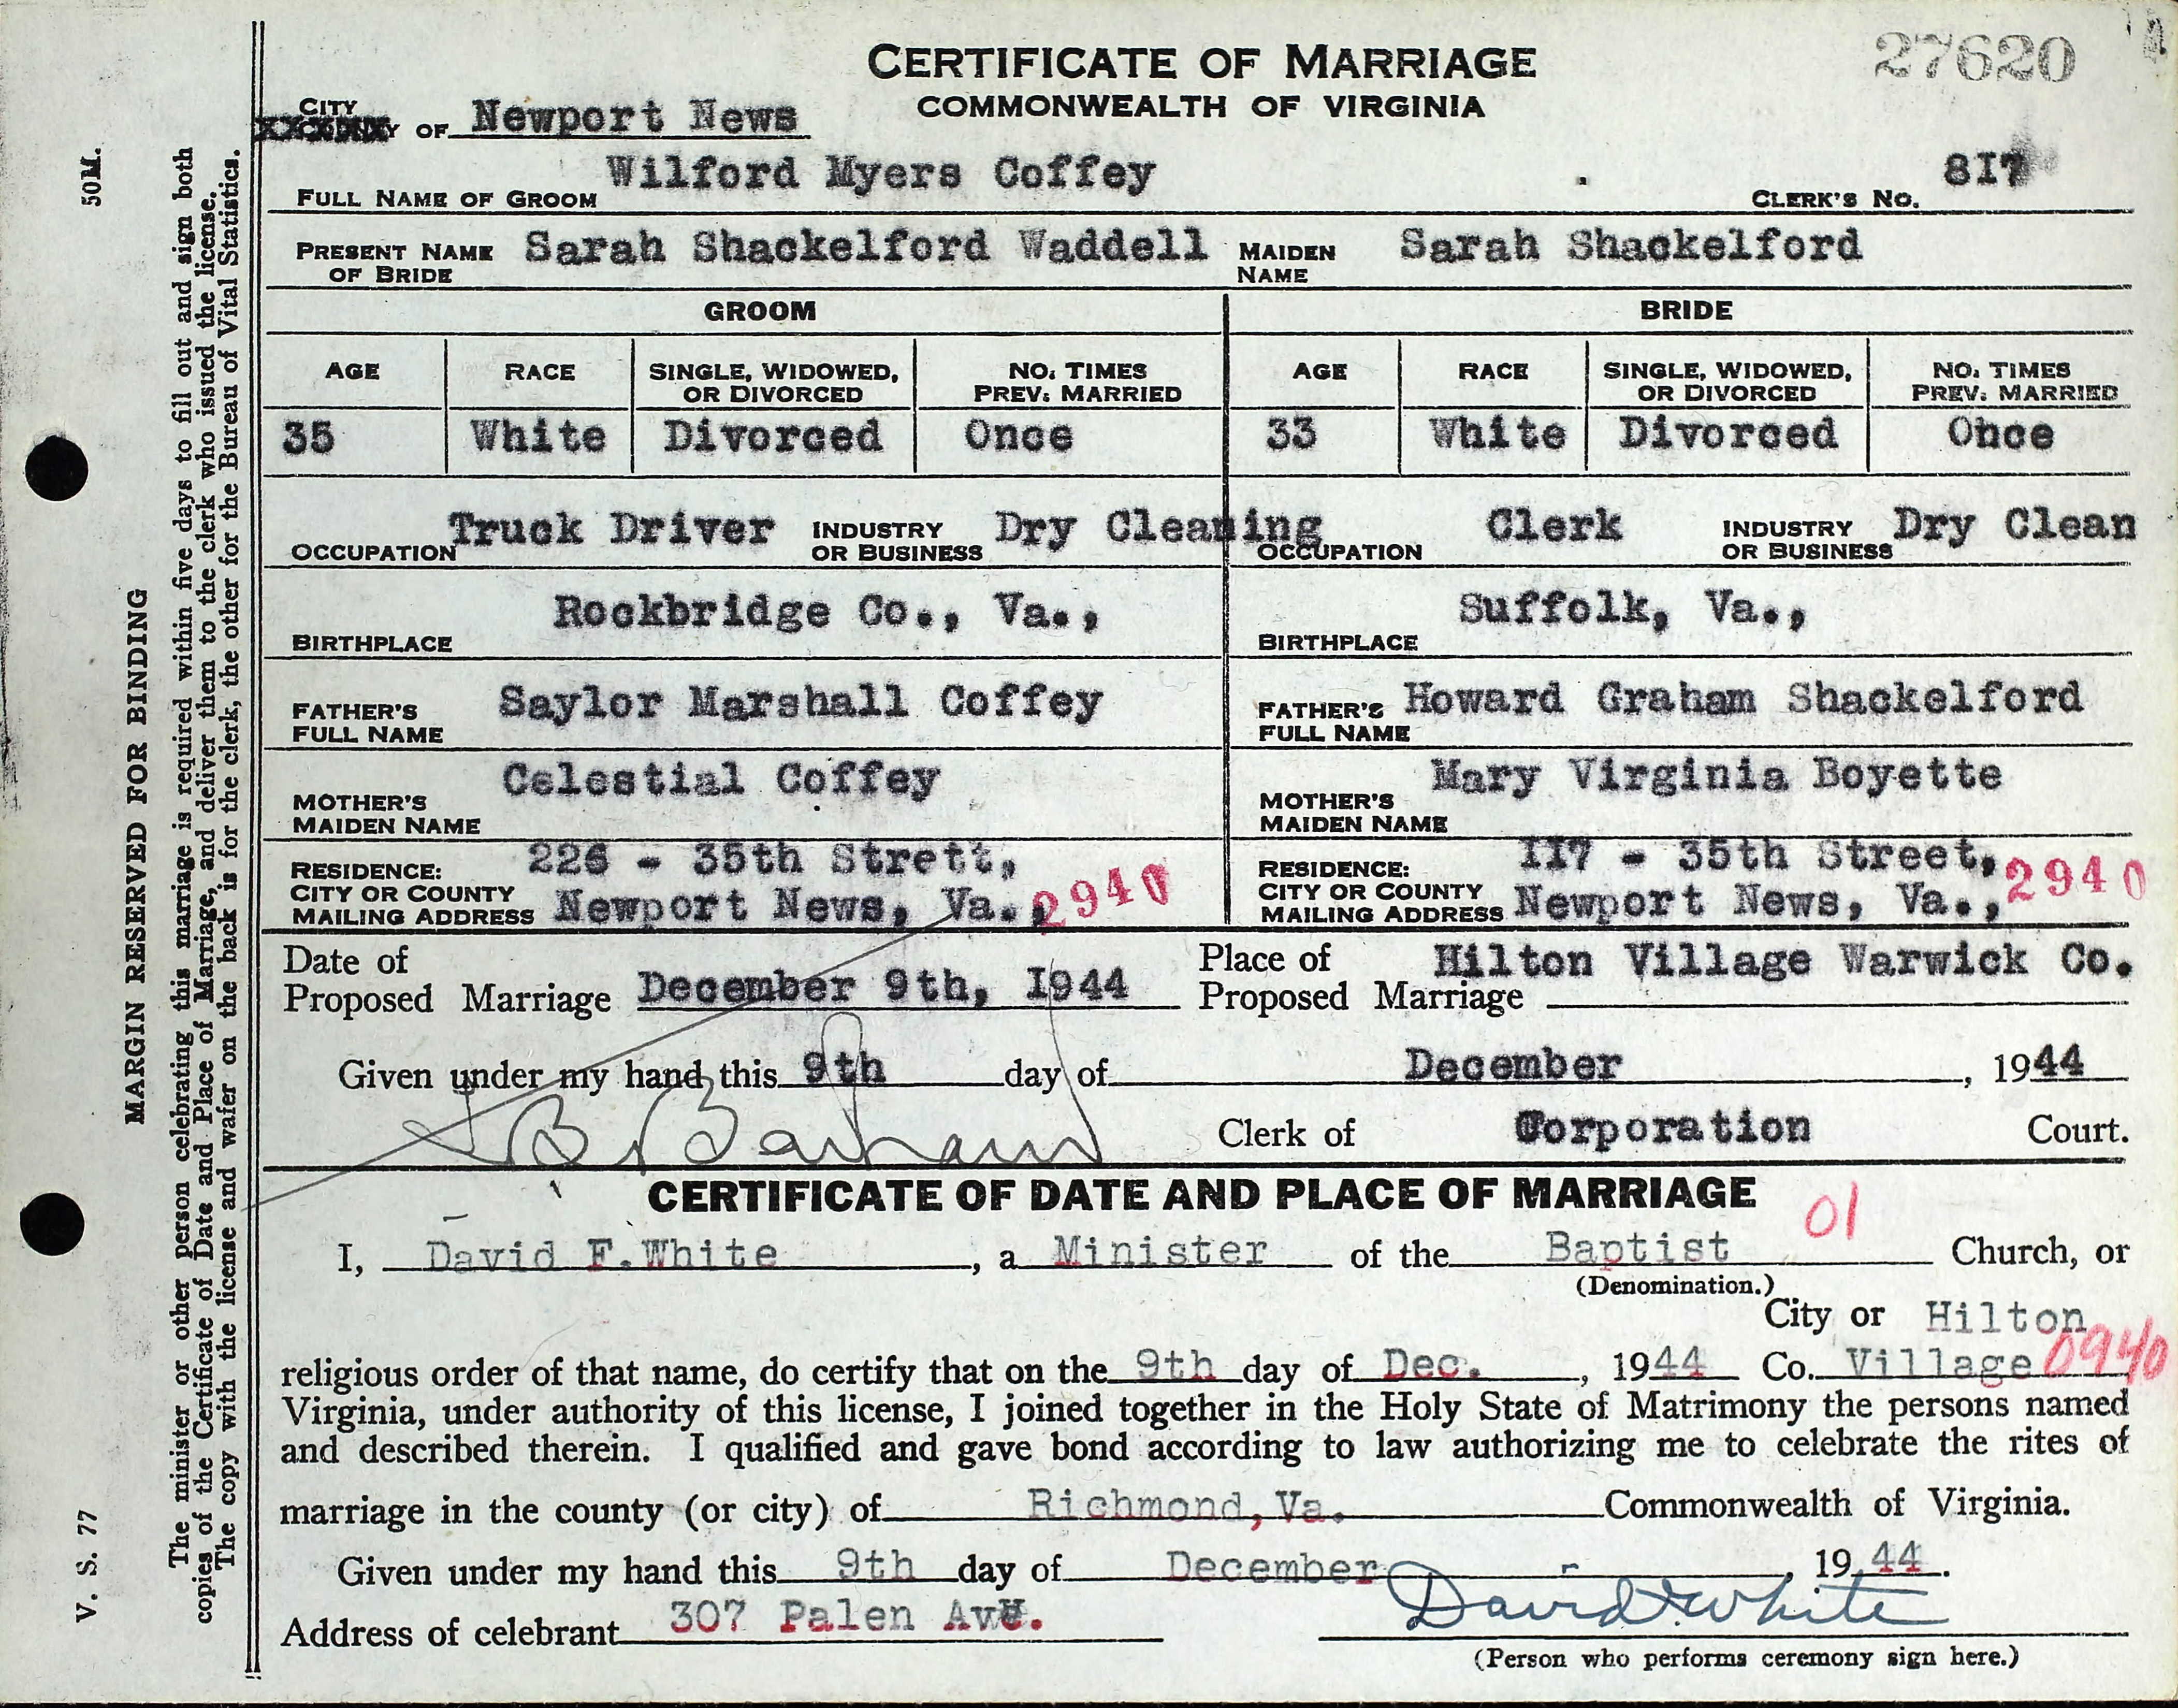 27620
CERTIFICATE OF MARRIAGE
COMMONWEALTH OF VIRGINIA
CITY
XXXXXXY OF Newport News
FULL NAME OF GROOM Wilford Myers Coffey CLERK'S NO. 8I7
PRESENT NAME OF BRIDE Sarah Shackelford Waddell MAIDEN NAME Sarah Shackelford
GROOM BRIDE
AGE RACE SINGLE, WIDOWED, OR DIVORCED NO. TIMES PREV. MARRIED AGE RACE SINGLE, WIDOWED, OR DIVORCED NO. TIMES PREV. MARRIED
35 White Divorced Once 33 White Divorced Ohce
OCCUPATION Truck Driver INDUSTRY OR BUSINESS Dry Cleaning OCCUPATION Clerk INDUSTRY OR BUSINESS Dry Clean
BIRTHPLACE Rockbridge Co., Va., BIRTHPLACE Suffolk, Va.,
FATHER'S FULL NAME Saylor Marshall Coffey FATHER'S FULL NAME Howard Graham Shackelford
MOTHER'S MAIDEN NAME Celestial Coffey MOTHER'S MAIDEN NAME Mary Virginia Boyette
RESIDENCE: CITY OR COUNTY MAILING ADDRESS 226 - 35th Strett, Newport News, Va., 2940 RESIDENCE: CITY OR COUNTY MAILING ADDRESS II7 - 35th Street, Newport News, Va., 2940
Date of Proposed Marriage December 9th, I944 Place of Proposed Marriage Hilton Village Warwick Co.
Given under my hand this 9th day of December, 1944
Clerk of Corporation Court.
CERTIFICATE OF DATE AND PLACE OF MARRIAGE
01
I, David F.White, a Minister of the Baptist Church, or
(Denomination.)
City or Hilton
religious order of that name, do certify that on the 9th day of Dec., 1944 Co. Village 0940
Virginia, under authority of this license, I joined together in the Holy State of Matrimony the persons named
and described therein. I qualified and gave bond according to law authorizing me to celebrate the rites of
marriage in the county (or city) of Richmond, Va. Commonwealth of Virginia.
Given under my hand this 9th day of December, 1944.
Address of celebrant 307 Palen Ave. David F White
(Person who performs ceremony sign here.)
V. S. 77 50M.
MARGIN RESERVED FOR BINDING
The minister or other person celebrating this marriage is required within five days to fill out and sign both
copies of the Certificate of Date and Place of Marriage, and deliver them to the clerk who issued the license.
The copy with the license and wafer on the back is for the clerk, the other for the Bureau of Vital Statistics.